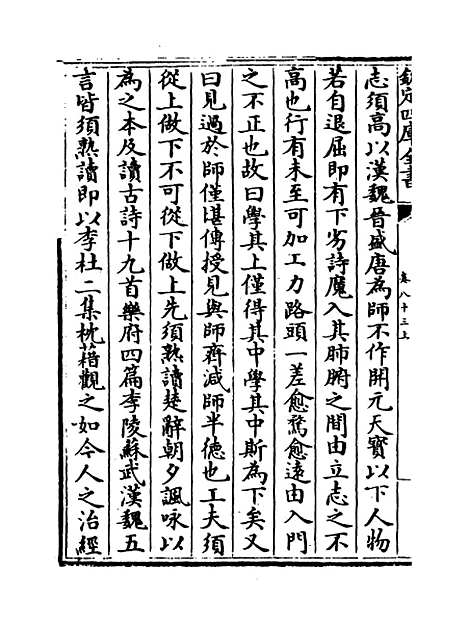 欽定四庫全書
卷八十三上
志須高以漢魏晉盛唐為師不作開元天寶以下人物
若自退屈即有下劣詩魔入其肺腑之間由立志之不
高也行有未至可加工力路頭一差愈騖愈遠由入門
之不正也故曰學其上僅得其中學其中斯為下矣又
曰見過於師僅堪傳授見與師齊減師半德也工夫須
從上做下不可從下做上先須熟讀楚辭朝夕諷咏以
為之本及讀古詩十九首樂府四篇李陵蘇武漢魏五
言皆須熟讀即以李杜二集枕藉觀之如今人之治經